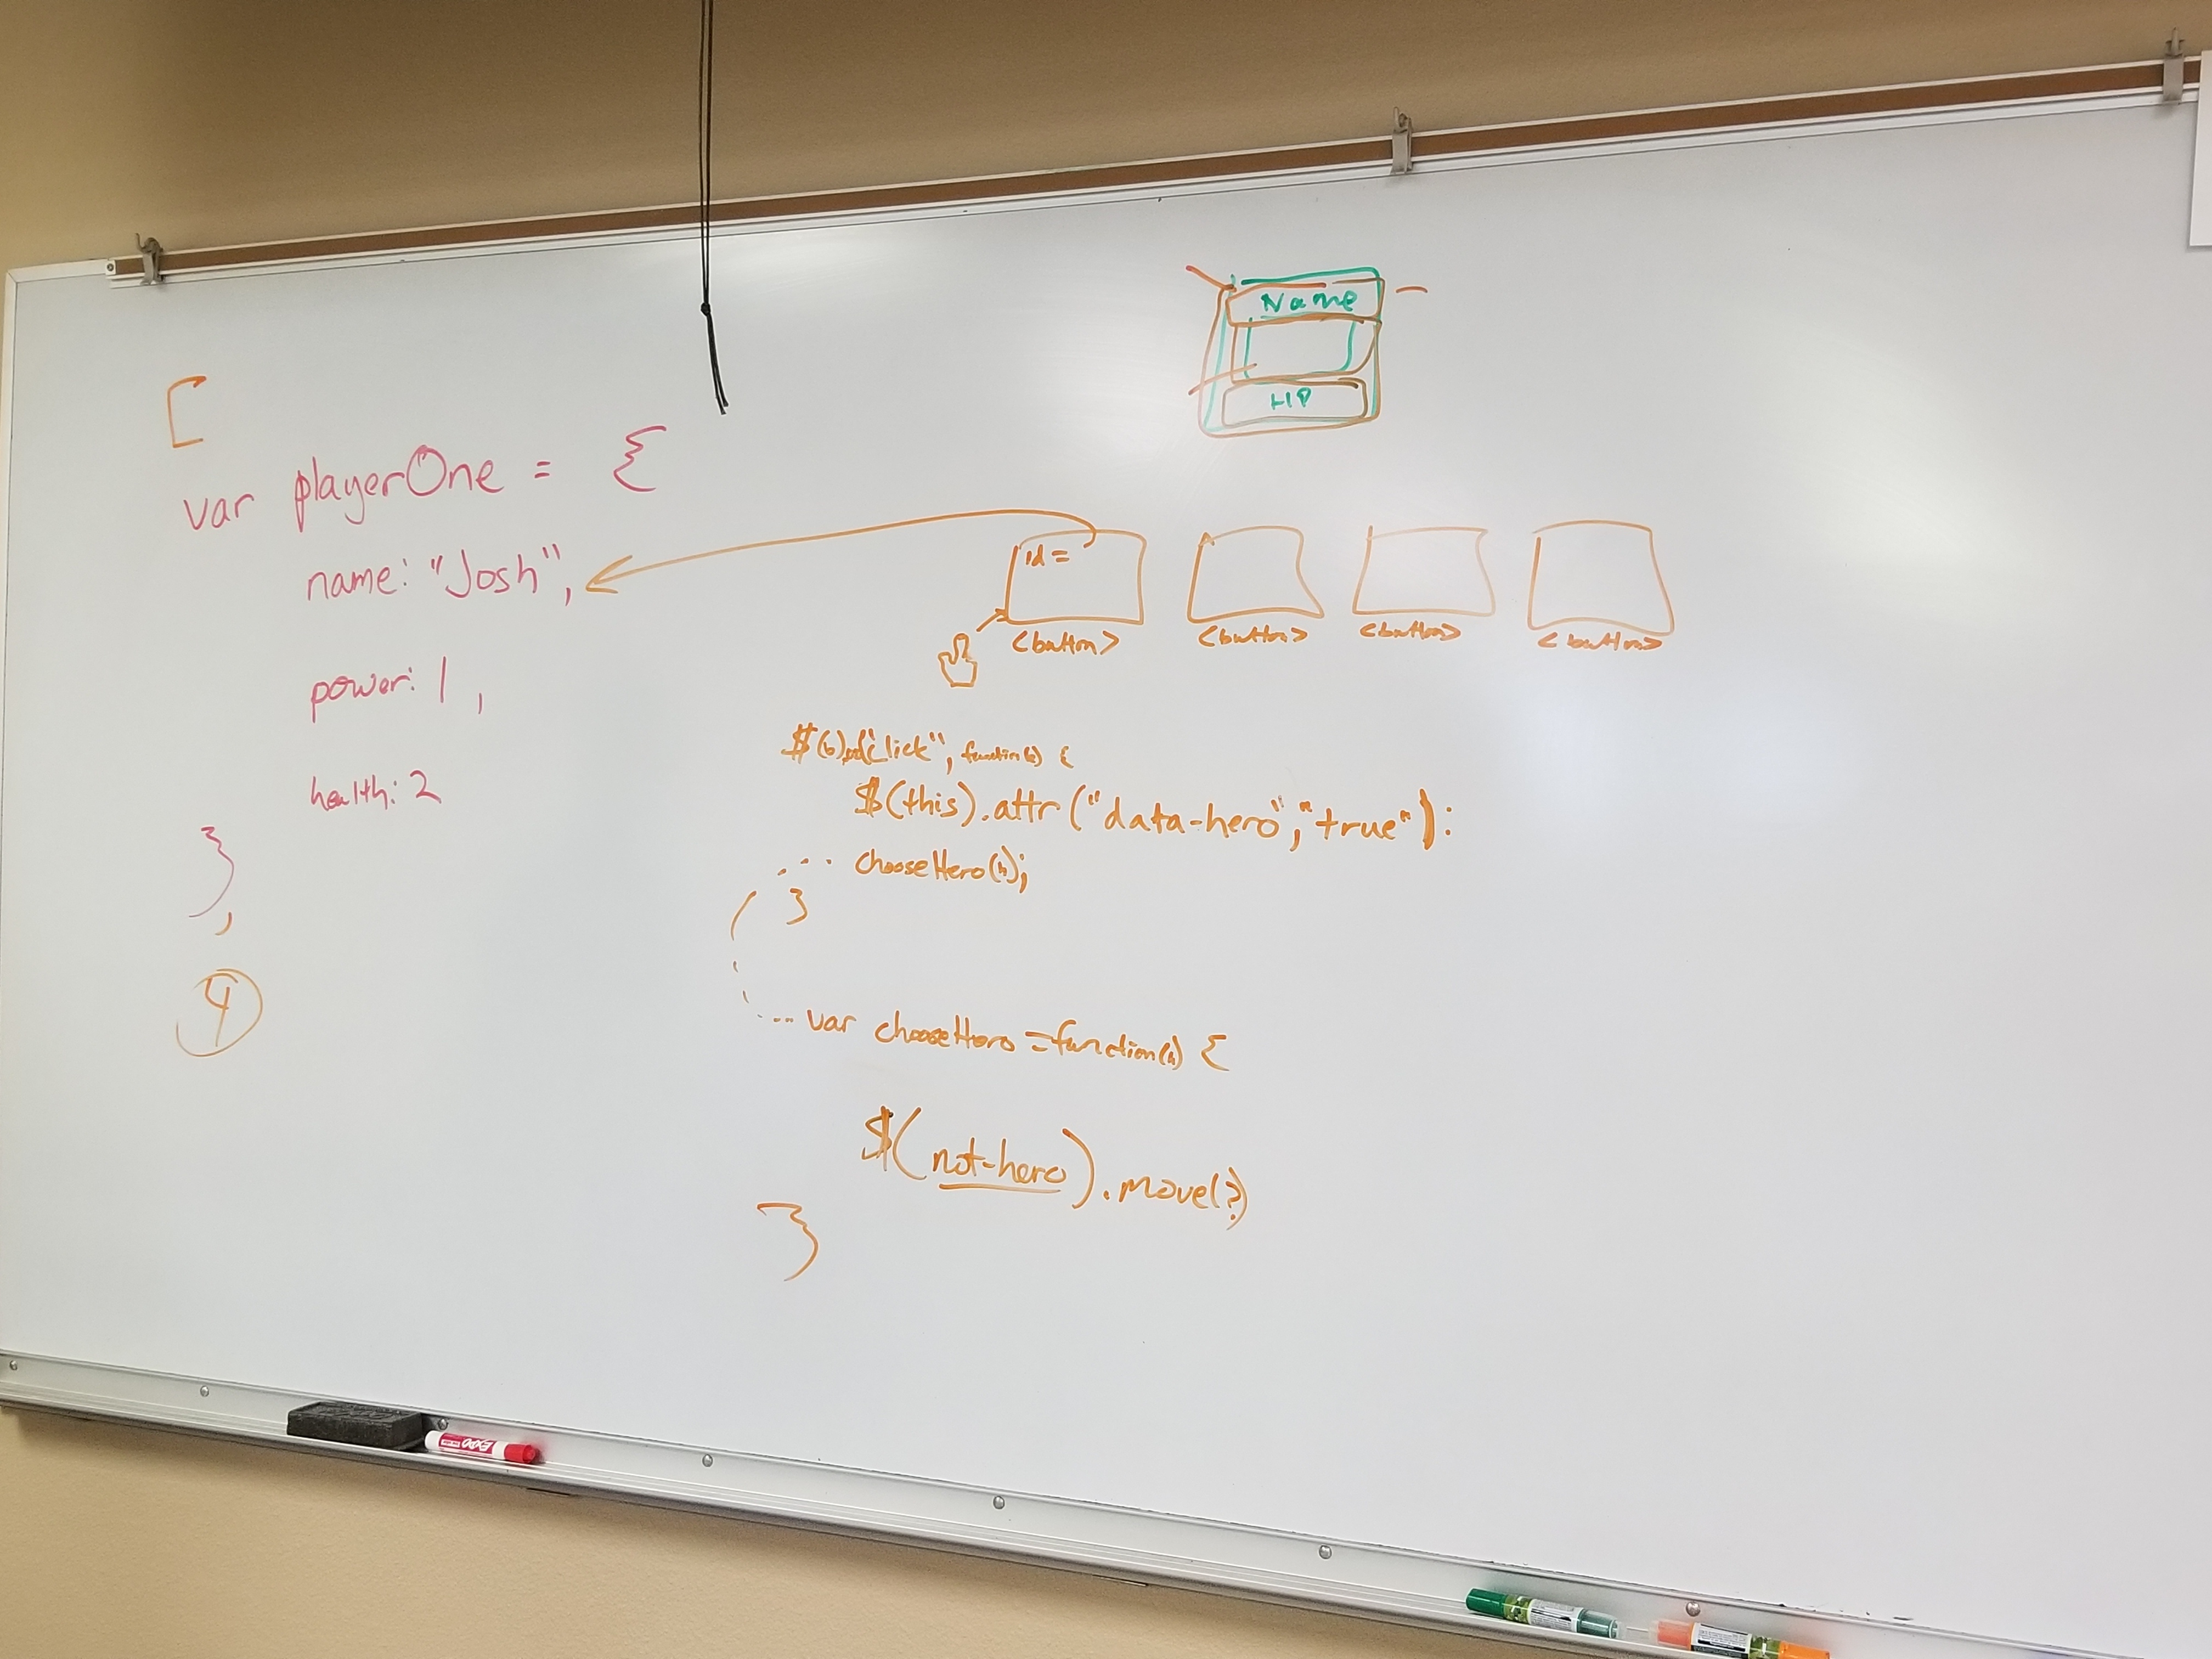 [
var playerOne = {
name: "Josh",
power: 1,
health: 2
}
,
4
Name
HP
id =
<button> <button> <button> <button>
$(b).on("click", function(e) {
$(this).attr("data-hero", "true"):
chooseHero(h);
}
var chooseHero = function(h) {
$(not-hero).move(?)
}
EXPO